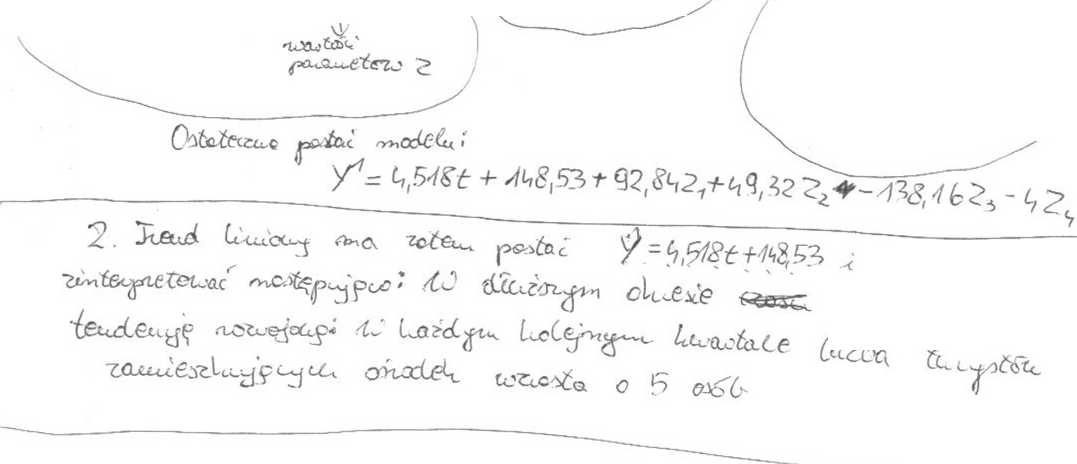 wartości
parametrów Z
Ostateczna postać modelu:
Y^ = 4,518t + 148,53 + 92,84Z1 + 49,32Z2 - 138,16Z3 - 4Z4
2. Trend liniowy ma zatem postać Y^ = 4,518t + 148,53 i
zinterpretować następująco: W dłuższym okresie
tendencję rozwojową w każdym kolejnym kwartale liczba turystów
zamieszkujących ośrodek wzrosła o 5 osób